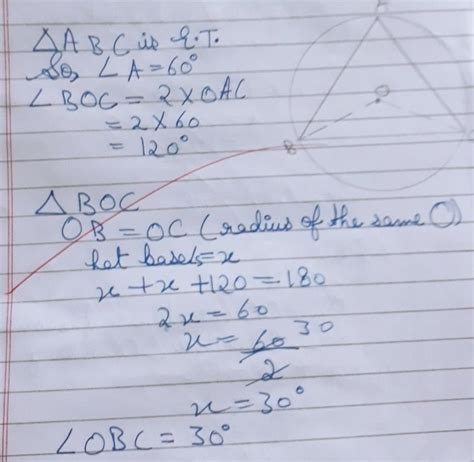 A
△ABC is E.T.
So, ∠A = 60°
∠BOC = 2 × OAC
= 2 × 60
= 120°
O
B
△BOC
OB = OC (radius of the same O)
Let bases = x
x + x + 120 = 180
2x = 60
x = 60 30
2
x = 30°
∠OBC = 30°